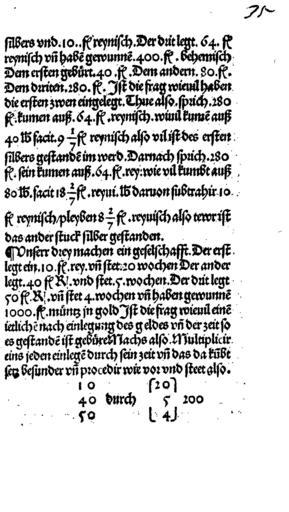 35
silbers vnd .10. . fl reynisch. Der drit legt. 64. fl
reynisch vñ habē gewunnē .400. fl. behemisch
Dem ersten gebürt .40. fl. Dem andern. 80. fl.
Dem dritten. 280. fl. Jst die frag wieuil haben
die ersten zwen eingelegt. Thue also. sprich. 280
fl. kumen auß. 64. fl. reynisch. wieuil kumē auß
40 lb facit. 9 1/7 fl reynisch also vil ist des ersten
silbers gestandē im werd. Darnach sprich. 280
fl. sein kumen auß. 64. fl. rey: wie vil kumbt auß
80 lb. facit 18 2/7 fl. reyni. lb daruon subtrahir 10
fl reynisch/pleyben 8 2/7 fl. reynisch also tewr ist
das ander stuck silber gestanden.
¶Unser drey machen ein geselschafft. Der erst
legt ein. 10. fl. rey. vñ stet. 20 wochen Der ander
legt. 40 fl R. vnd stet. 5. wochen. Der drit legt
50 fl. R. vñ stet 4. wochen vñ haben gewunnē
1000. fl. müntz in gold Jst die frag wieuil einē
ietlichē nach einlegung des geldes vñ der zeit so
es gestandē ist gebüre Machs also. Multiplicir
eins jeden einlegē durch sein zeit vñ das da kūbt
setz besunder vñ procedir wie vor vnd steet also.
10 20
40 durch 5 200
50 4